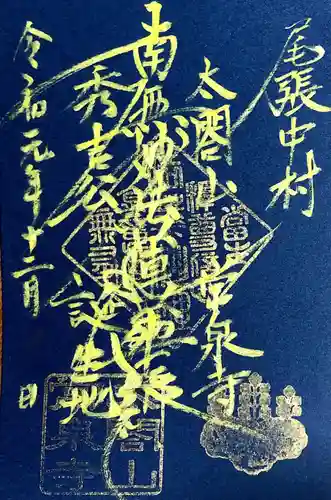 尾張中村
太閤山 常泉寺
南無妙法蓮華経
秀吉公 誕生地
令和元年十二月 日